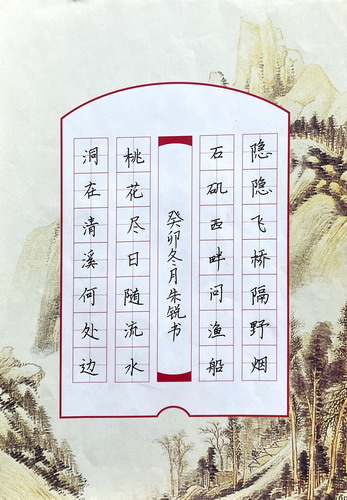 隐隐飞桥隔野烟
石矶西畔问渔船
桃花尽日随流水
洞在清溪何处边
癸卯冬月朱锐书